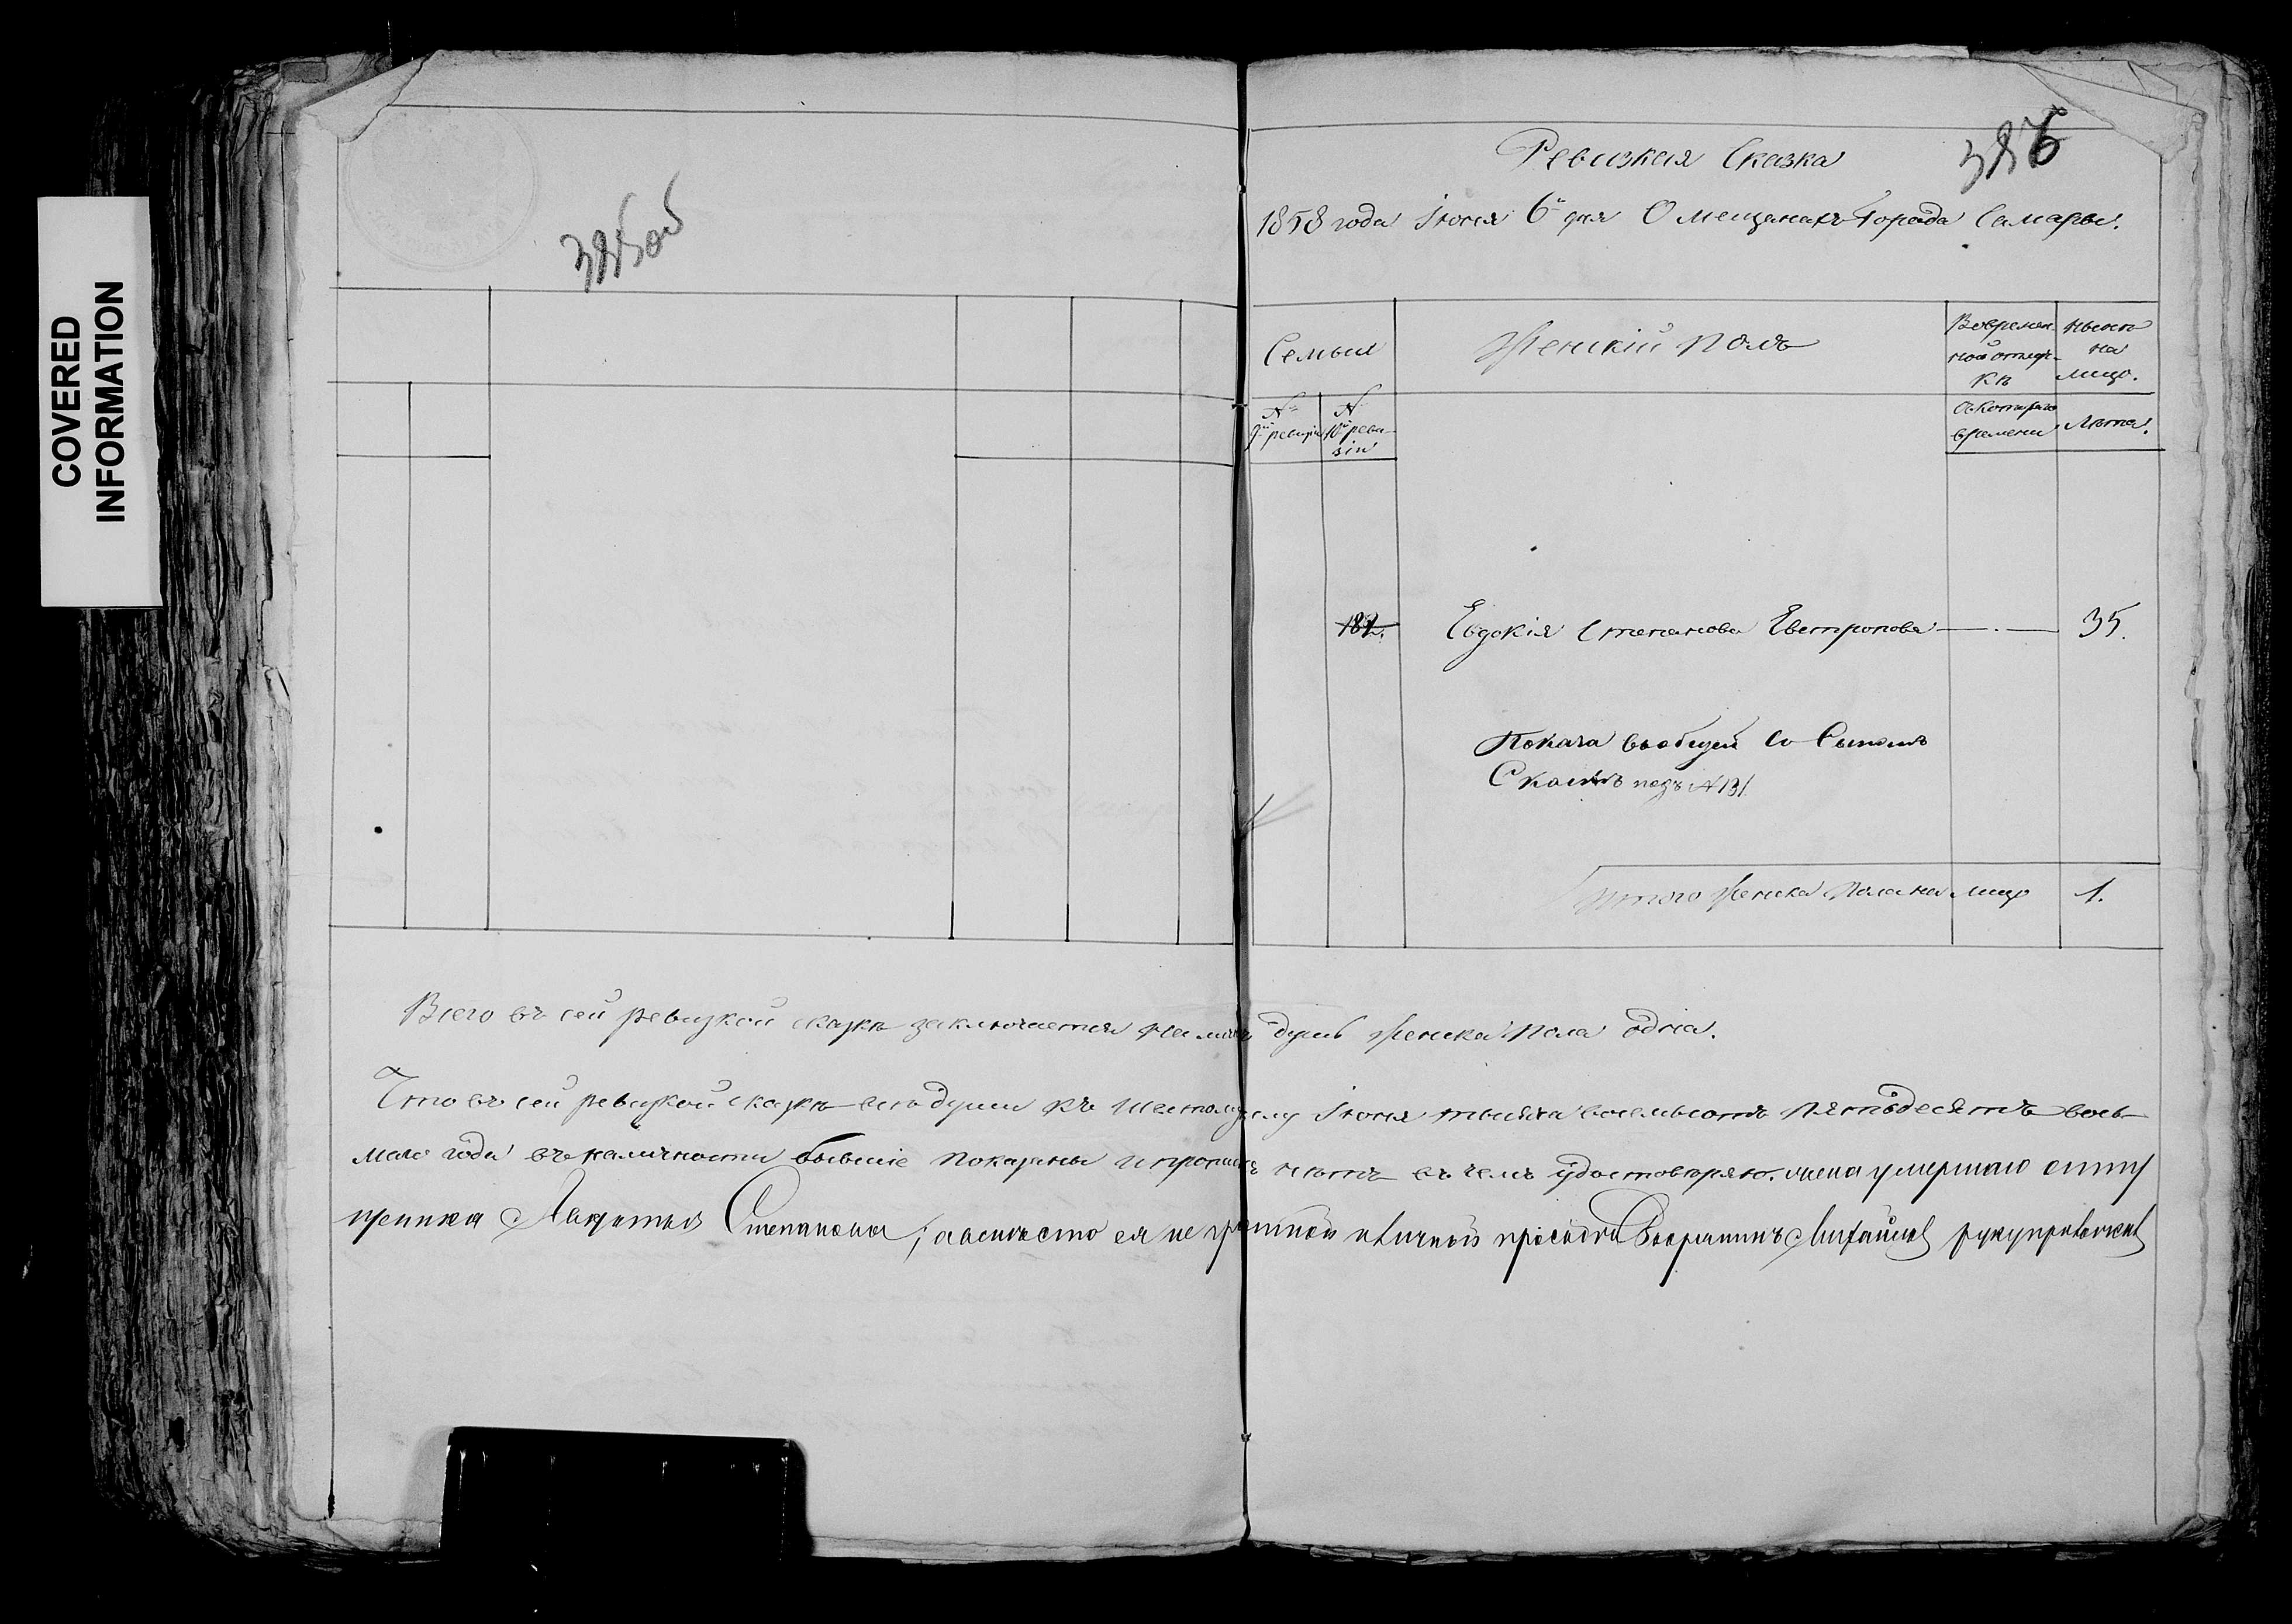 COVERED
INFORMATION
325об
326
Ревизкая Сказка
1858 года Іюня 6го дня О мещанахъ Города Самары.
Семьи
Женскій полъ
Во времен
ной отлуч-
кѣ
Нынѣ
на
лицо.
№
9й ревизіи
№
10й реви-
зіи
Съ котораго
времени
Лѣта.
182.
Евдокія Степанова Евтропова
35.
Показа въ общей со Сыномъ
Сказкѣ подъ №131
Итого Женска Пола на лицо
1.
Всего въ сей ревизкой сказкѣ заключается на лицо душъ женска пола одна.
Что въ сей ревизкой сказкѣ всѣ души къ Шестому Іюня тысяча восемьсотъ пятьдесятъ вось-
маго года въ наличности бывшіе показаны и прописныхъ нѣтъ въ чемъ удостовѣряю. жена умершаго
Степанова, а вместо ея не грамотной по личной просьбѣ Михайловъ руку приложилъ